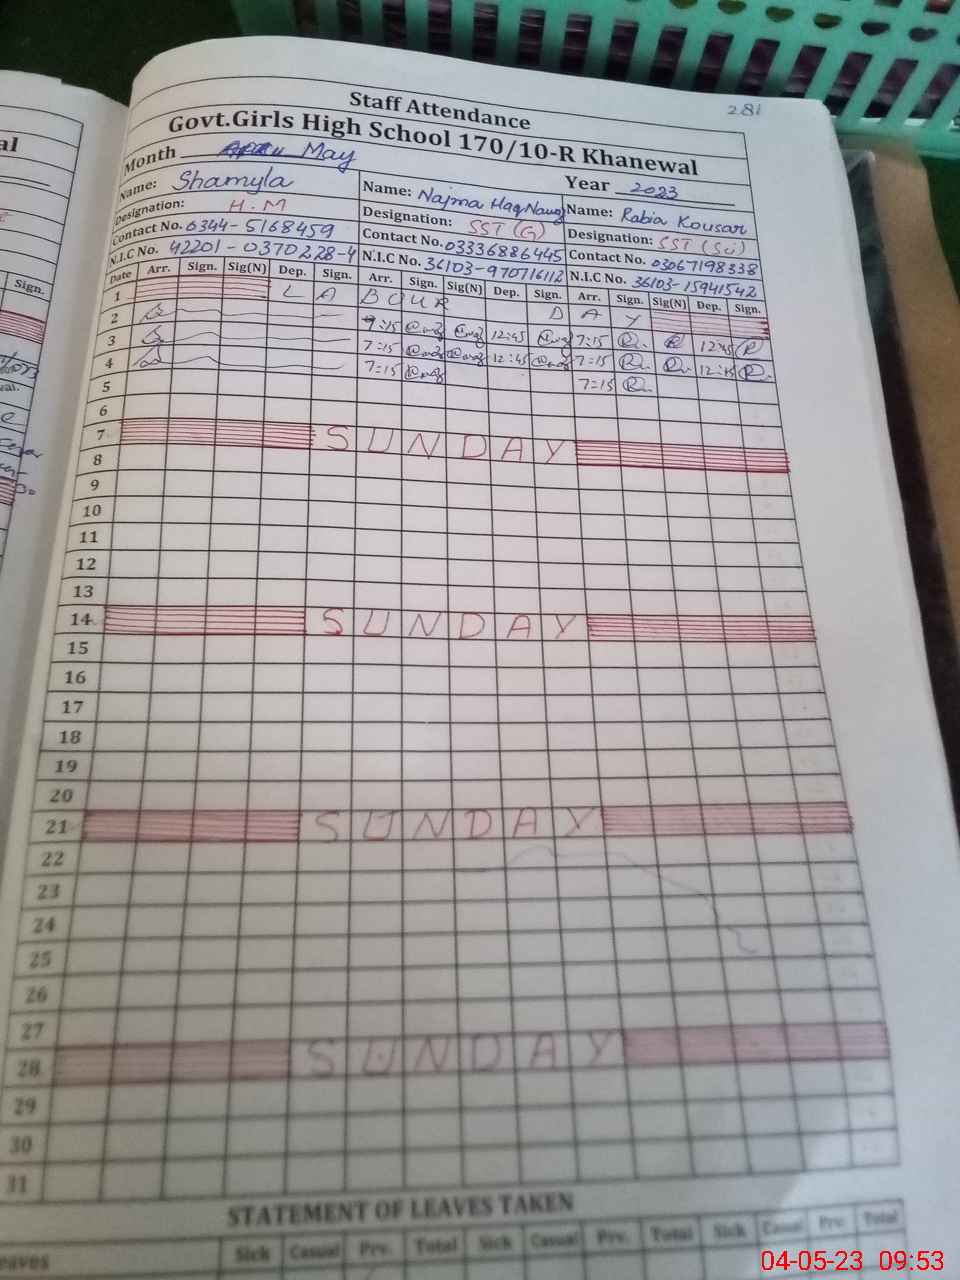 281
Staff Attendance
Govt.Girls High School 170/10-R Khanewal
Month May Year 2023
Name: Shamyla Name: Najma Haq Nawaz Name: Rabia Kousar
Designation: H.M Designation: SST (G) Designation: SST (Sci)
Contact No. 0344-5168459 Contact No. 03336886445 Contact No. 03067198338
N.I.C No. 42201-0370228-4 N.I.C No. 36103-970716112 N.I.C No. 36103-15941542
Date Arr. Sign. Sig(N) Dep. Sign. Arr. Sign. Sig(N) Dep. Sign. Arr. Sign. Sig(N) Dep. Sign.
1 L A B O U R D A Y
2 7:15 12:45 7:15 12:45
3 7:15 12:45 7:15 12:45
4 7:15 7:15
5
6
7 S U N D A Y
8
9
10
11
12
13
14 S U N D A Y
15
16
17
18
19
20
21 S U N D A Y
22
23
24
25
26
27
28 S U N D A Y
29
30
31
STATEMENT OF LEAVES TAKEN
eaves Sick Casual Prv. Total Sick Casual Prv. Total Sick Casual Prv. Total
al
Sign.
04-05-23 09:53